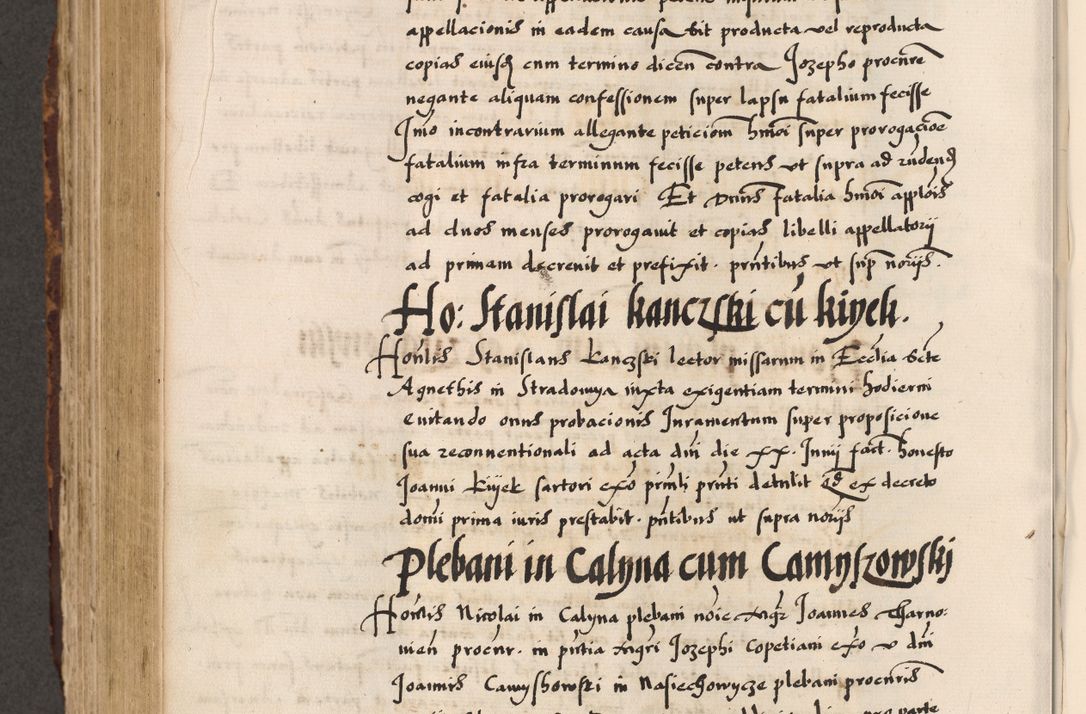 appellacionis in eadem causa sit producta vel reproducta
copias eiusq cum termino dicen contra Jozepho procure
negante aliquam confessionem super lapsu fatalium fecisse
Imo incontrarium allegante peticiom hmoi super prorogacioe
fatalium infra terminum fecisse petens ut supra ad
cogi et fatalia prorogari Et Dnus fatalia hmoi
ad duos menses prorogavit et copias libelli appellatorij
ad primam decrevit et prefixit. pntibus ut sup norijs.
Ho: Stanislai kanczski cu kiyek.
Honlis Stanislaus Kanczski lector missarum in Ecclia Scte
Agnethis in Stradomya iuxta exigentiam termini hodierni
evitando onus probacionis Juramentum super proposicione
sua reconventionali ad acta din die xx. Junij fact. honesto
Joanni Kiyek sartori exo prinli pnti detulit qd ex decreto
domi prima iuris prestabit. pntibus ut supra norijs
Plebani in Calyna cum Camyszowski
Honlis Nicolai in Calyna plebani noie mgr Joannes Tharno:
vien procur. in pntia mgri Jozephi Copetiani exo v dni
Joannis Camyshowski in Nasiechowycze plebani procuris